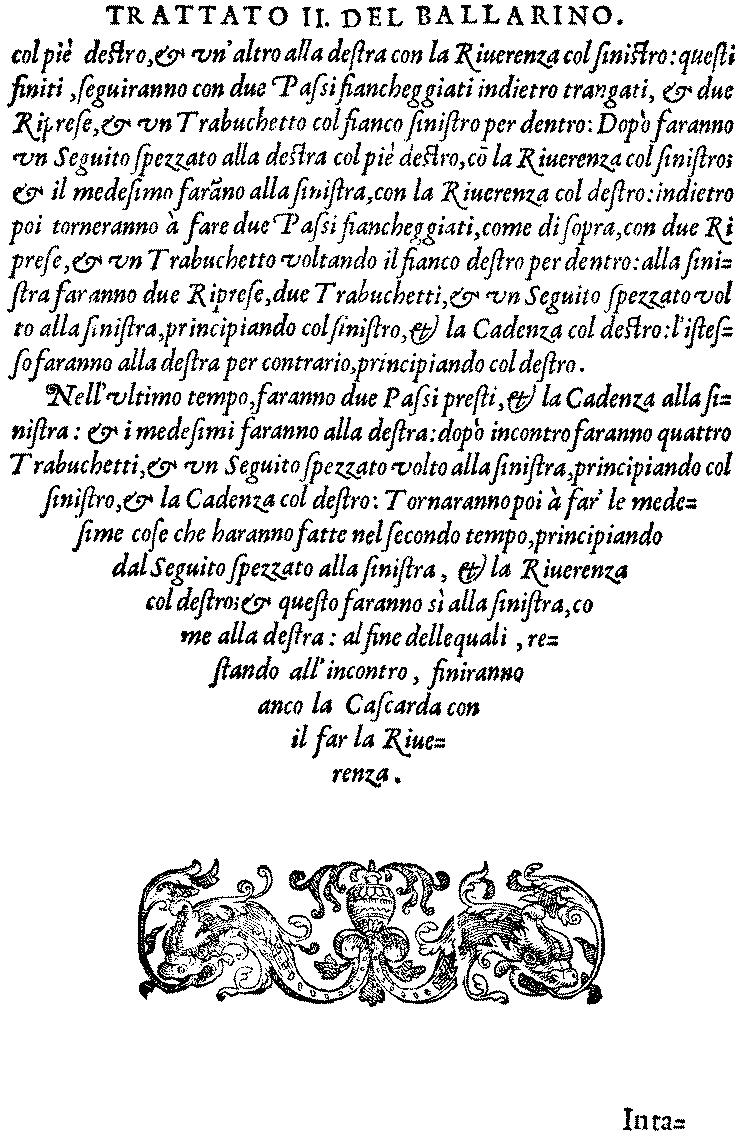 TRATTATO II. DEL BALLARINO.
col piè destro, & vn'altro alla destra con la Riuerenza col sinistro: questi
finiti, seguiranno con due Passi fiancheggiati indietro trangati, & due
Riprese, & vn Trabuchetto col fianco sinistro per dentro: Dopò faranno
vn Seguito spezzato alla destra col piè destro, cō la Riuerenza col sinistro;
& il medesimo farāno alla sinistra, con la Riuerenza col destro: indietro
poi torneranno à fare due Passi fiancheggiati, come di sopra, con due Ri
prese, & vn Trabuchetto voltando il fianco destro per dentro: alla sini=
stra faranno due Riprese, due Trabuchetti, & vn Seguito spezzato vol
to alla sinistra, principiando col sinistro, & la Cadenza col destro: l'istes=
so faranno alla destra per contrario, principiando col destro.
Nell'vltimo tempo, faranno due Passi presti, & la Cadenza alla si=
nistra: & i medesimi faranno alla destra: dopò incontro faranno quattro
Trabuchetti, & vn Seguito spezzato volto alla sinistra, principiando col
sinistro, & la Cadenza col destro: Tornaranno poi à far' le mede=
sime cose che haranno fatte nel secondo tempo, principiando
dal Seguito spezzato alla sinistra, & la Riuerenza
col destro; & questo faranno sì alla sinistra, co
me alla destra: al fine delle quali, re=
stando all'incontro, finiranno
anco la Cascarda con
il far la Riue=
renza.
Inta=